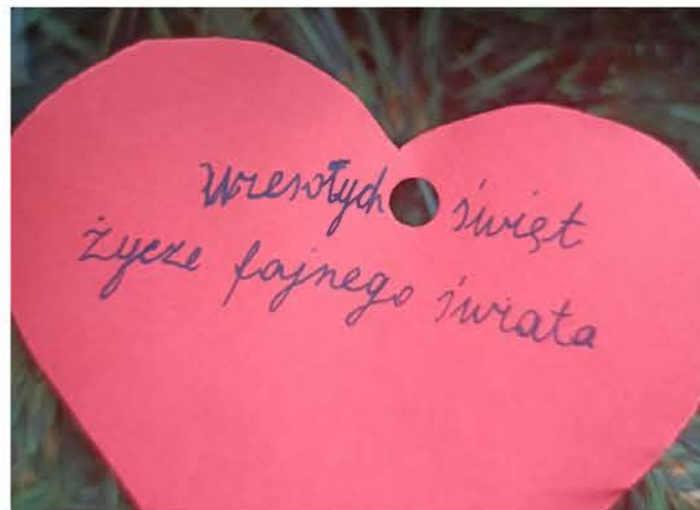 Wzesołych świąt
życze fajnego świata